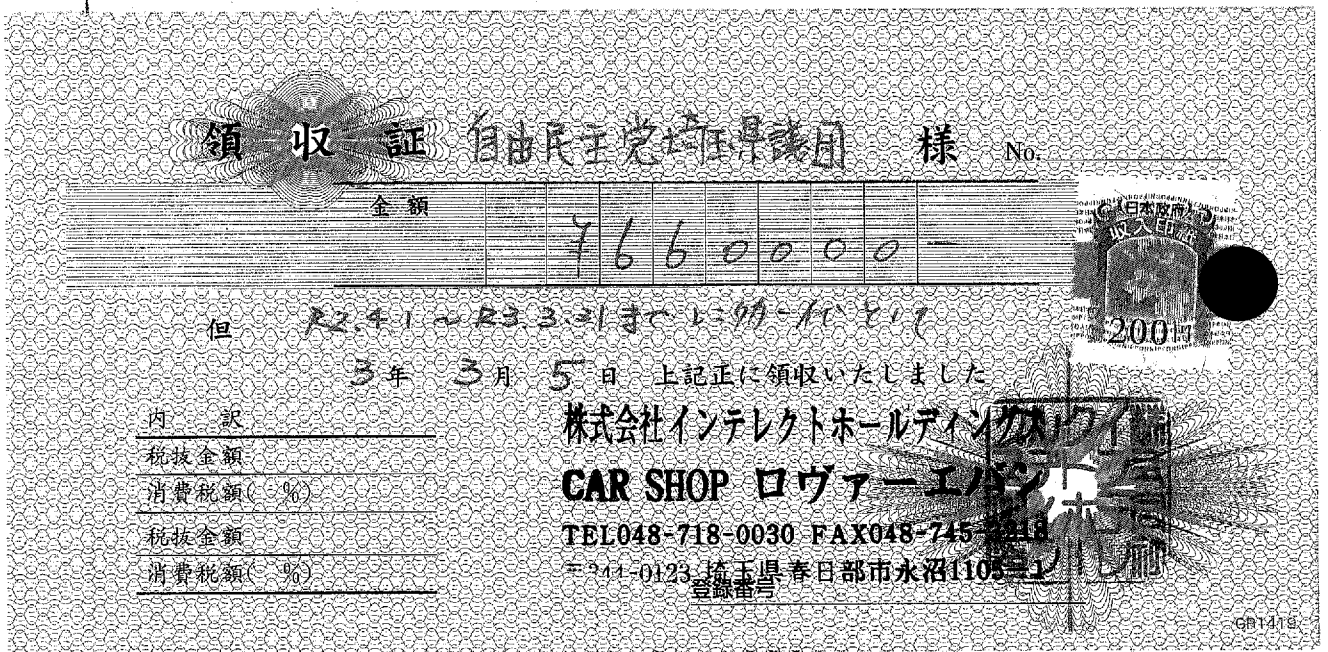 領収証 自由民主党埼玉県議団 様 No.
金額 ¥660000-
但 R2.4.1～R3.3.31まで レンタカー代として
3年 3月 5日 上記正に領収いたしました
日本政府
収入印紙
200円
内訳
税抜金額
消費税額( %)
税抜金額
消費税額( %)
株式会社インテレクトホールディングス
CAR SHOP ロヴァーエバン
TEL048-718-0030 FAX048-745-
〒344-0123 埼玉県春日部市永沼1105-1
登録番号
GR1419